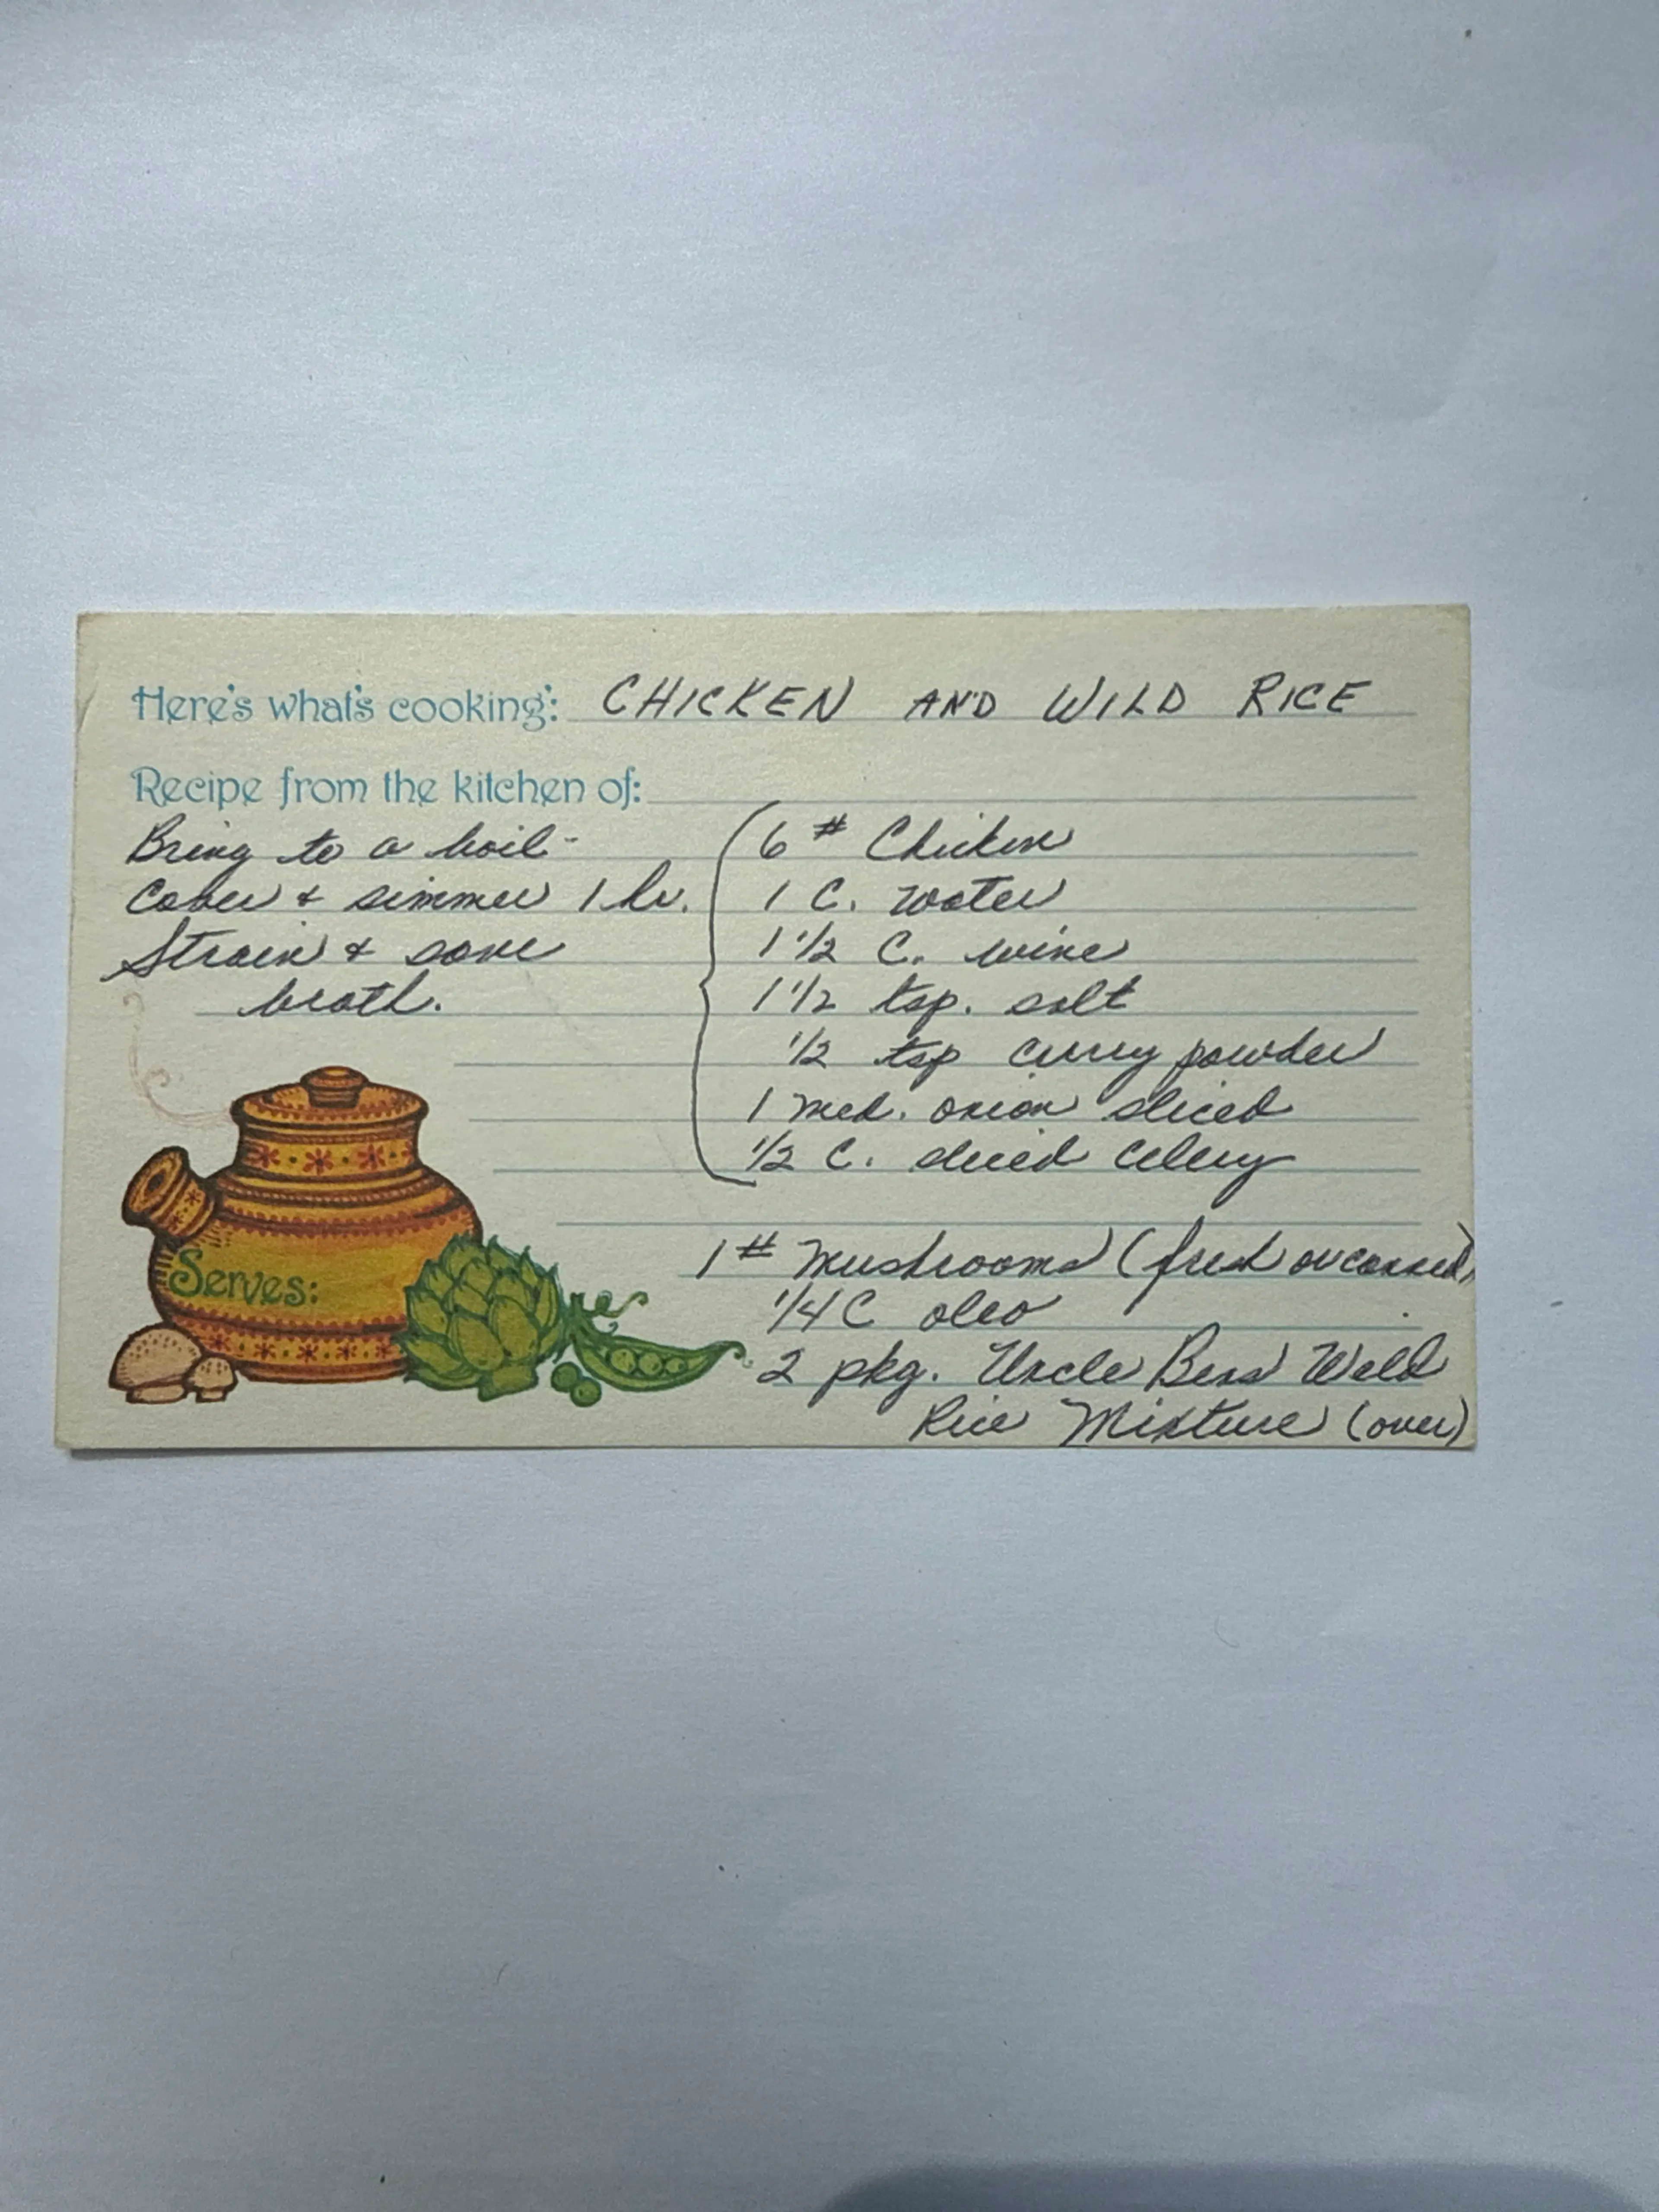 Here's what's cooking: CHICKEN AND WILD RICE
Recipe from the kitchen of:
Bring to a boil-
Cover & simmer 1 hr.
Strain & save
broth.
6 # Chicken
1 C. water
1 1/2 C. wine
1 1/2 tsp. salt
1/2 tsp curry powder
1 med. onion sliced
1/2 C. sliced celery
1 # mushrooms (fresh or canned)
1/4 C oleo
2 pkg. Uncle Bens Wild
Rice Mixture (over)
Serves: